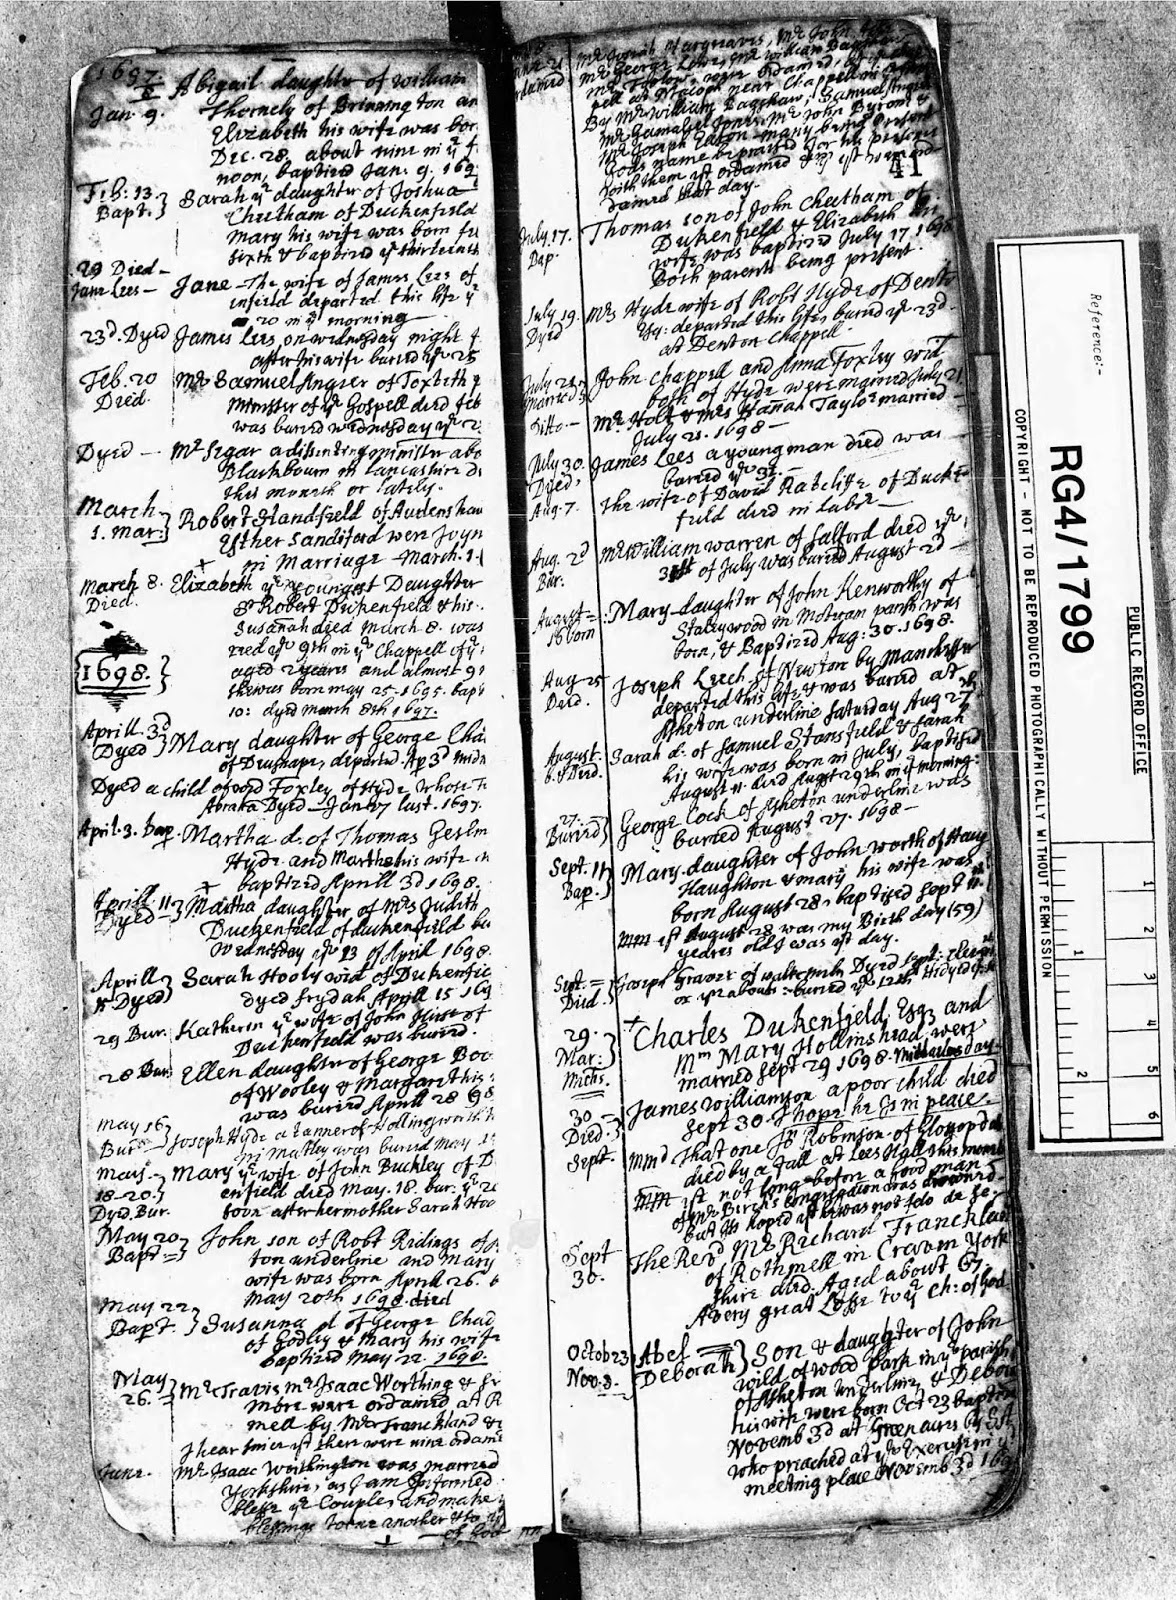 1697/8
Jan. 9.
Abigail daughter of William
Thornely of Brinnington an
Elizabeth his wife was bor
Dec. 28, about nine in yͤ f
noon, baptized Jan. 9. 169
Feb: 13. Bapt.} Sarah yͤ daughter of Joshua
Cheetham of Duckenfield
Mary his wife was born
sixth & baptized yͤ thirteenth
29 Died
Jane Lees – Jane The wife of James Lees of
infield departed this life yͤ
20 in yͤ morning
23ᵈ. Dyed James Lees, on wednesday night
after his wife buried yͤ 25
Feb. 20 Died. Mr Samuel Angier of Toxteth
Minister of yͤ Gospell died feb
was buried wednesday yͤ 2
Dyed — Mr Segar a dissenting minister abo
Blackbourn in Lancashire d
this month or lately.
March 1. Mar:} Robert Handfield of Audenshaw
Esther Sandiford were Joyn
in Marriage – March. 1.
March 8. Died. Elizabeth yͤ youngest Daughter
Robert Duckenfield & his
Susanah died March 8. was
ried yͤ 9th in yͤ Chappell of yͤ
aged 2 years and almost 9
she was born may 25. 1695. bap
10: dyed march 8th 1697.
1698.
Aprill 3ᵈ Dyed} Mary daughter of George Cha
departed Ap 3ᵈ
Dyed a child of Foxley of Hyde whose
Dyed – Jan 07 last. 1697.
April. 3. bap. Martha d. of Thomas
Hyde and Martha his wife
baptized Aprill 3d 1698.
Aprill 11 Dyed} Martha daughter of Mrs Judith
Duckenfield of duckenfield bu
Wednesday yͤ 13 of Aprill 1698.
Aprill Dyed} Sarah Hooly wid of Dukenfie
dyed frydah Aprill 15 169
29 Bur. Katherin yͤ wife of John Hurst of
Duckenfield was buried.
28 Bur. Ellen daughter of George Boo
of Wooley & Margaret his
was buried Aprill 28 98
May 16 Bur Joseph Hyde a tanner of Hollingworth
in Matley was buried May
May. 18-20. Dyed. Bur. Mary yͤ wife of John Buckley of D
enfield died May. 18. bur. yͤ 20
soon after her mother Sarah Hoo
May 20 Bapt} John son of Robt Ridings of
ton underline and Mary
wife was born April 26.
May 20th 1698 died
May 22 Bapt.} Susanna d of George Chad
of Godley & Mary his wife
baptized May 22. 1698.
May 26.} Mr Travis Mr Isaac Worthing &
more were ordained at R
mell by Mr Franckland &
I hear since yt there were nine ordain
June. Mr Isaac Worthington was married
Yorkshire, as I am informed
bless yͤ Couple, and make
blessings to one another & to
of God
Mr George Low, Mr William
near Chappell
By Mr William Bagshaw, Samuel Angier
Mr Gamaliel Jones, Mr John Byrom &
Mr Joseph Eaton many being present
Gods name be praised for his presence
with them
dained that day.
41
July. 17. Bap. Thomas son of John Cheetham of
Dukenfield & Elizabeth his
wife was baptized July 17. 1698
Both parents being present.
July 19. Dyed Mrs Hyde wife of Robt Hyde of Dent
departed this life, buried yͤ 23ᵈ.
at Denton Chappell.
July 21. married John Chappell and Anna Foxley wid
both of Hyde were married July 21
Ditto — Mr Holt & Mrs Hanah Taylor married
July 21. 1698 –
July 30. Dyed, James Lees a young man died was
buried yͤ 31. –
Aug. 7. The wife of David Ratcliffe of Ducke
field died in Labor –
Aug. 2ᵈ Bur. Mr William warren of Salford died yͤ
31st of July was buried August 2ᵈ –
August 16 born Mary daughter of John Kenworthy of
Staleywood in Motram parish was
born, & Baptized Aug: 30. 1698.
Aug 25 Died. Joseph Leech of Newton by Manchester
departed this life & was buried at
Asheton underline Saturday Aug 27
August. b. & Died. Sarah d. of Samuel Stansfield & Sarah
his wife was born in July, baptised
August 11. died August 29th on yͤ morning:
27. Buried} George Cock of Asheton underline was
buried August 27. 1698 –
Sept. 11 Bap.} Mary daughter of John worth of Haug
Haughton & mary his wife was
born August 28, baptised Sept 11.
mm yt August 28 was my Birth day (59)
yeares old I was yt day.
Sept. Died.} Joseph Graver of Dyed Sept:
or yͬabouts: buried yͤ 12th
29. Mar:} Michs. Charles Dukenfield, Esqr and
Mm Mary Hollinshead were
married Sept 29 1698. Michaelmas day –
30 Died. James Williamson a poor child died
Sept 30. I hope he is in peace.
Sept. mmd That one Jn Robinson of Glossop
died by a fall at Lees Hall this month
mm yt not long before a good man
of Mr Birch's congregation was drowned
but tis hoped
Sept 30. The Revᵈ Mr Richard Francklan
of Rothmell in Craven York
shire died. Aged about 67
A very great Losse to yͤ Ch: of God
Octob 23 Nov. 3. Abel Deborah} Son & daughter of John
wild of wood park in yͤ parish
of Asheton Underline, & Debor
his wife were born Oct 23 baptiz
Novemb 3d at Greenacres by
who preached at yͤ Exercise in yͤ
meeting place Novemb 3d 169
Reference:-
RG4/1799
PUBLIC RECORD OFFICE
COPYRIGHT - NOT TO BE REPRODUCED PHOTOGRAPHICALLY WITHOUT PERMISSION
1
2
3
4
5
6
1
2